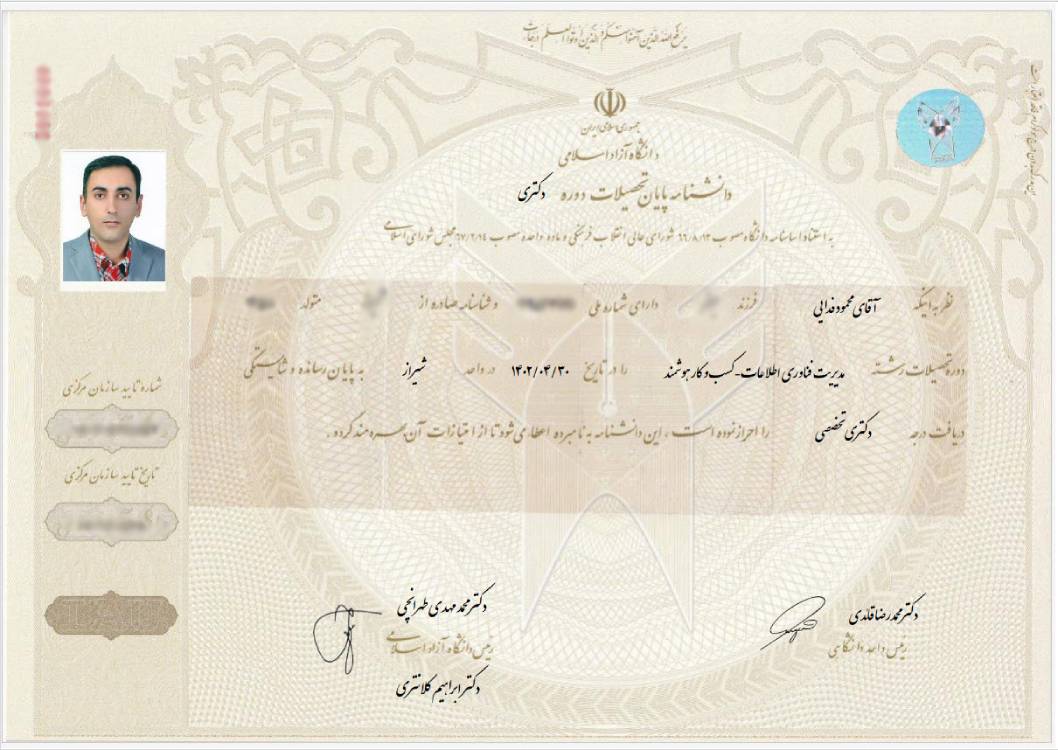 یرفع الله الذین آمنوا منکم و الذین اوتوا العلم درجات
جمهوری اسلامی ایران
دانشگاه آزاد اسلامی
دانشنامه پایان تحصیلات دوره دکتری
به استناد اساسنامه دانشگاه مصوب ۶۶/۸/۱۳ شورای عالی انقلاب فرهنگی و ماده واحده مصوب ۶۷/۲/۱۴ مجلس شورای اسلامی
نظر به اینکه آقای محمود فدایی فرزند دارای شماره ملی و شناسنامه صادره از متولد
دوره تحصیلات رشته مدیریت فناوری اطلاعات-کسب و کار هوشمند را در تاریخ ۱۴۰۲/۰۴/۳۰ در واحد شیراز به پایان رسانده و شایستگی
دریافت درجه دکتری تخصصی را احراز نموده است، این دانشنامه به نامبرده اعطا می شود تا از امتیازات آن بهره مند گردد.
شماره تایید سازمان مرکزی
تاریخ تایید سازمان مرکزی
دکتر محمدرضا قائدی
رئیس واحد دانشگاهی
دکتر محمد مهدی طهرانچی
رئیس دانشگاه آزاد اسلامی
دکتر ابراهیم کلانتری